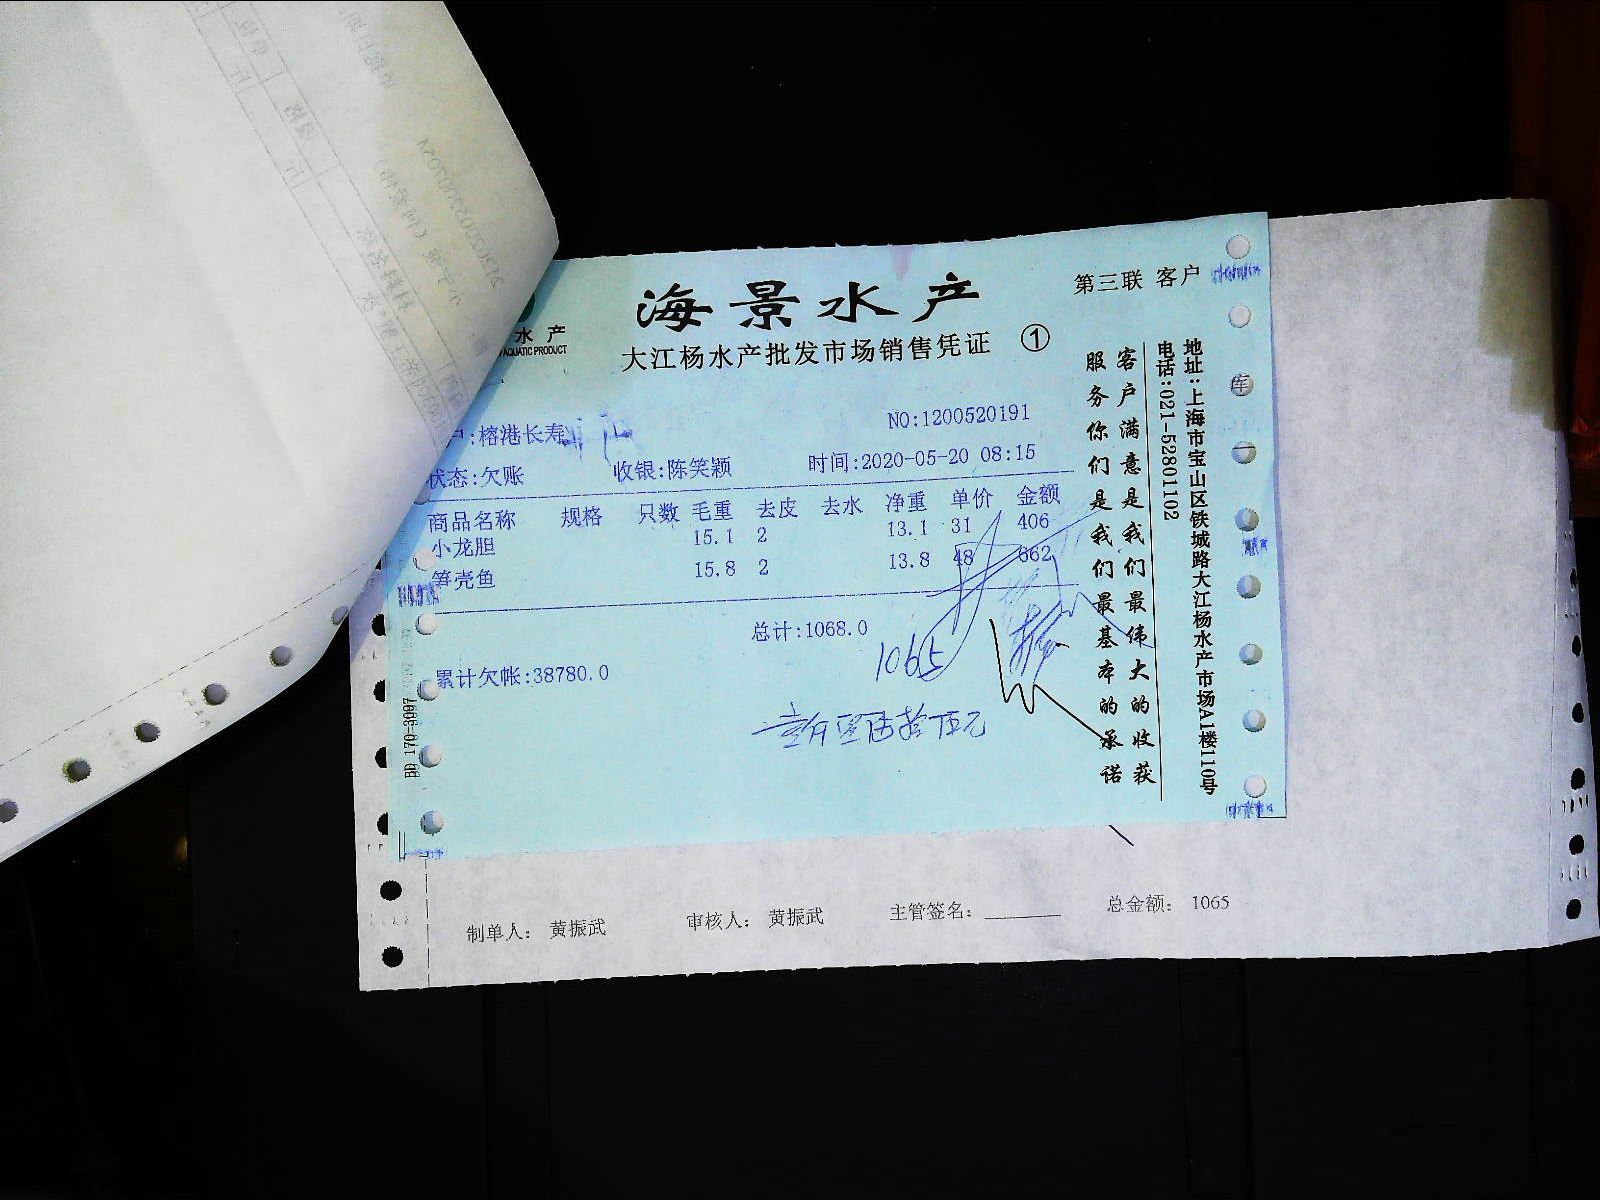 海景水产
第三联 客户
水产
AQUATIC PRODUCT
大江杨水产批发市场销售凭证 ①
:榕港长寿
NO:1200520191
状态:欠账 收银:陈笑颖 时间:2020-05-20 08:15
商品名称 规格 只数 毛重 去皮 去水 净重 单价 金额
小龙胆 15.1 2 13.1 31 406
笋壳鱼 15.8 2 13.8 48 662
总计:1068.0
1065
累计欠帐:38780.0
壹仟零陆拾伍元
客户满意是我们最伟大的收获
服务你们是我们最基本的承诺
地址:上海市宝山区铁城路大江杨水产市场A1楼110号
电话:021-52801102
BD 170-3097
制单人: 黄振武 审核人: 黄振武 主管签名: 总金额: 1065